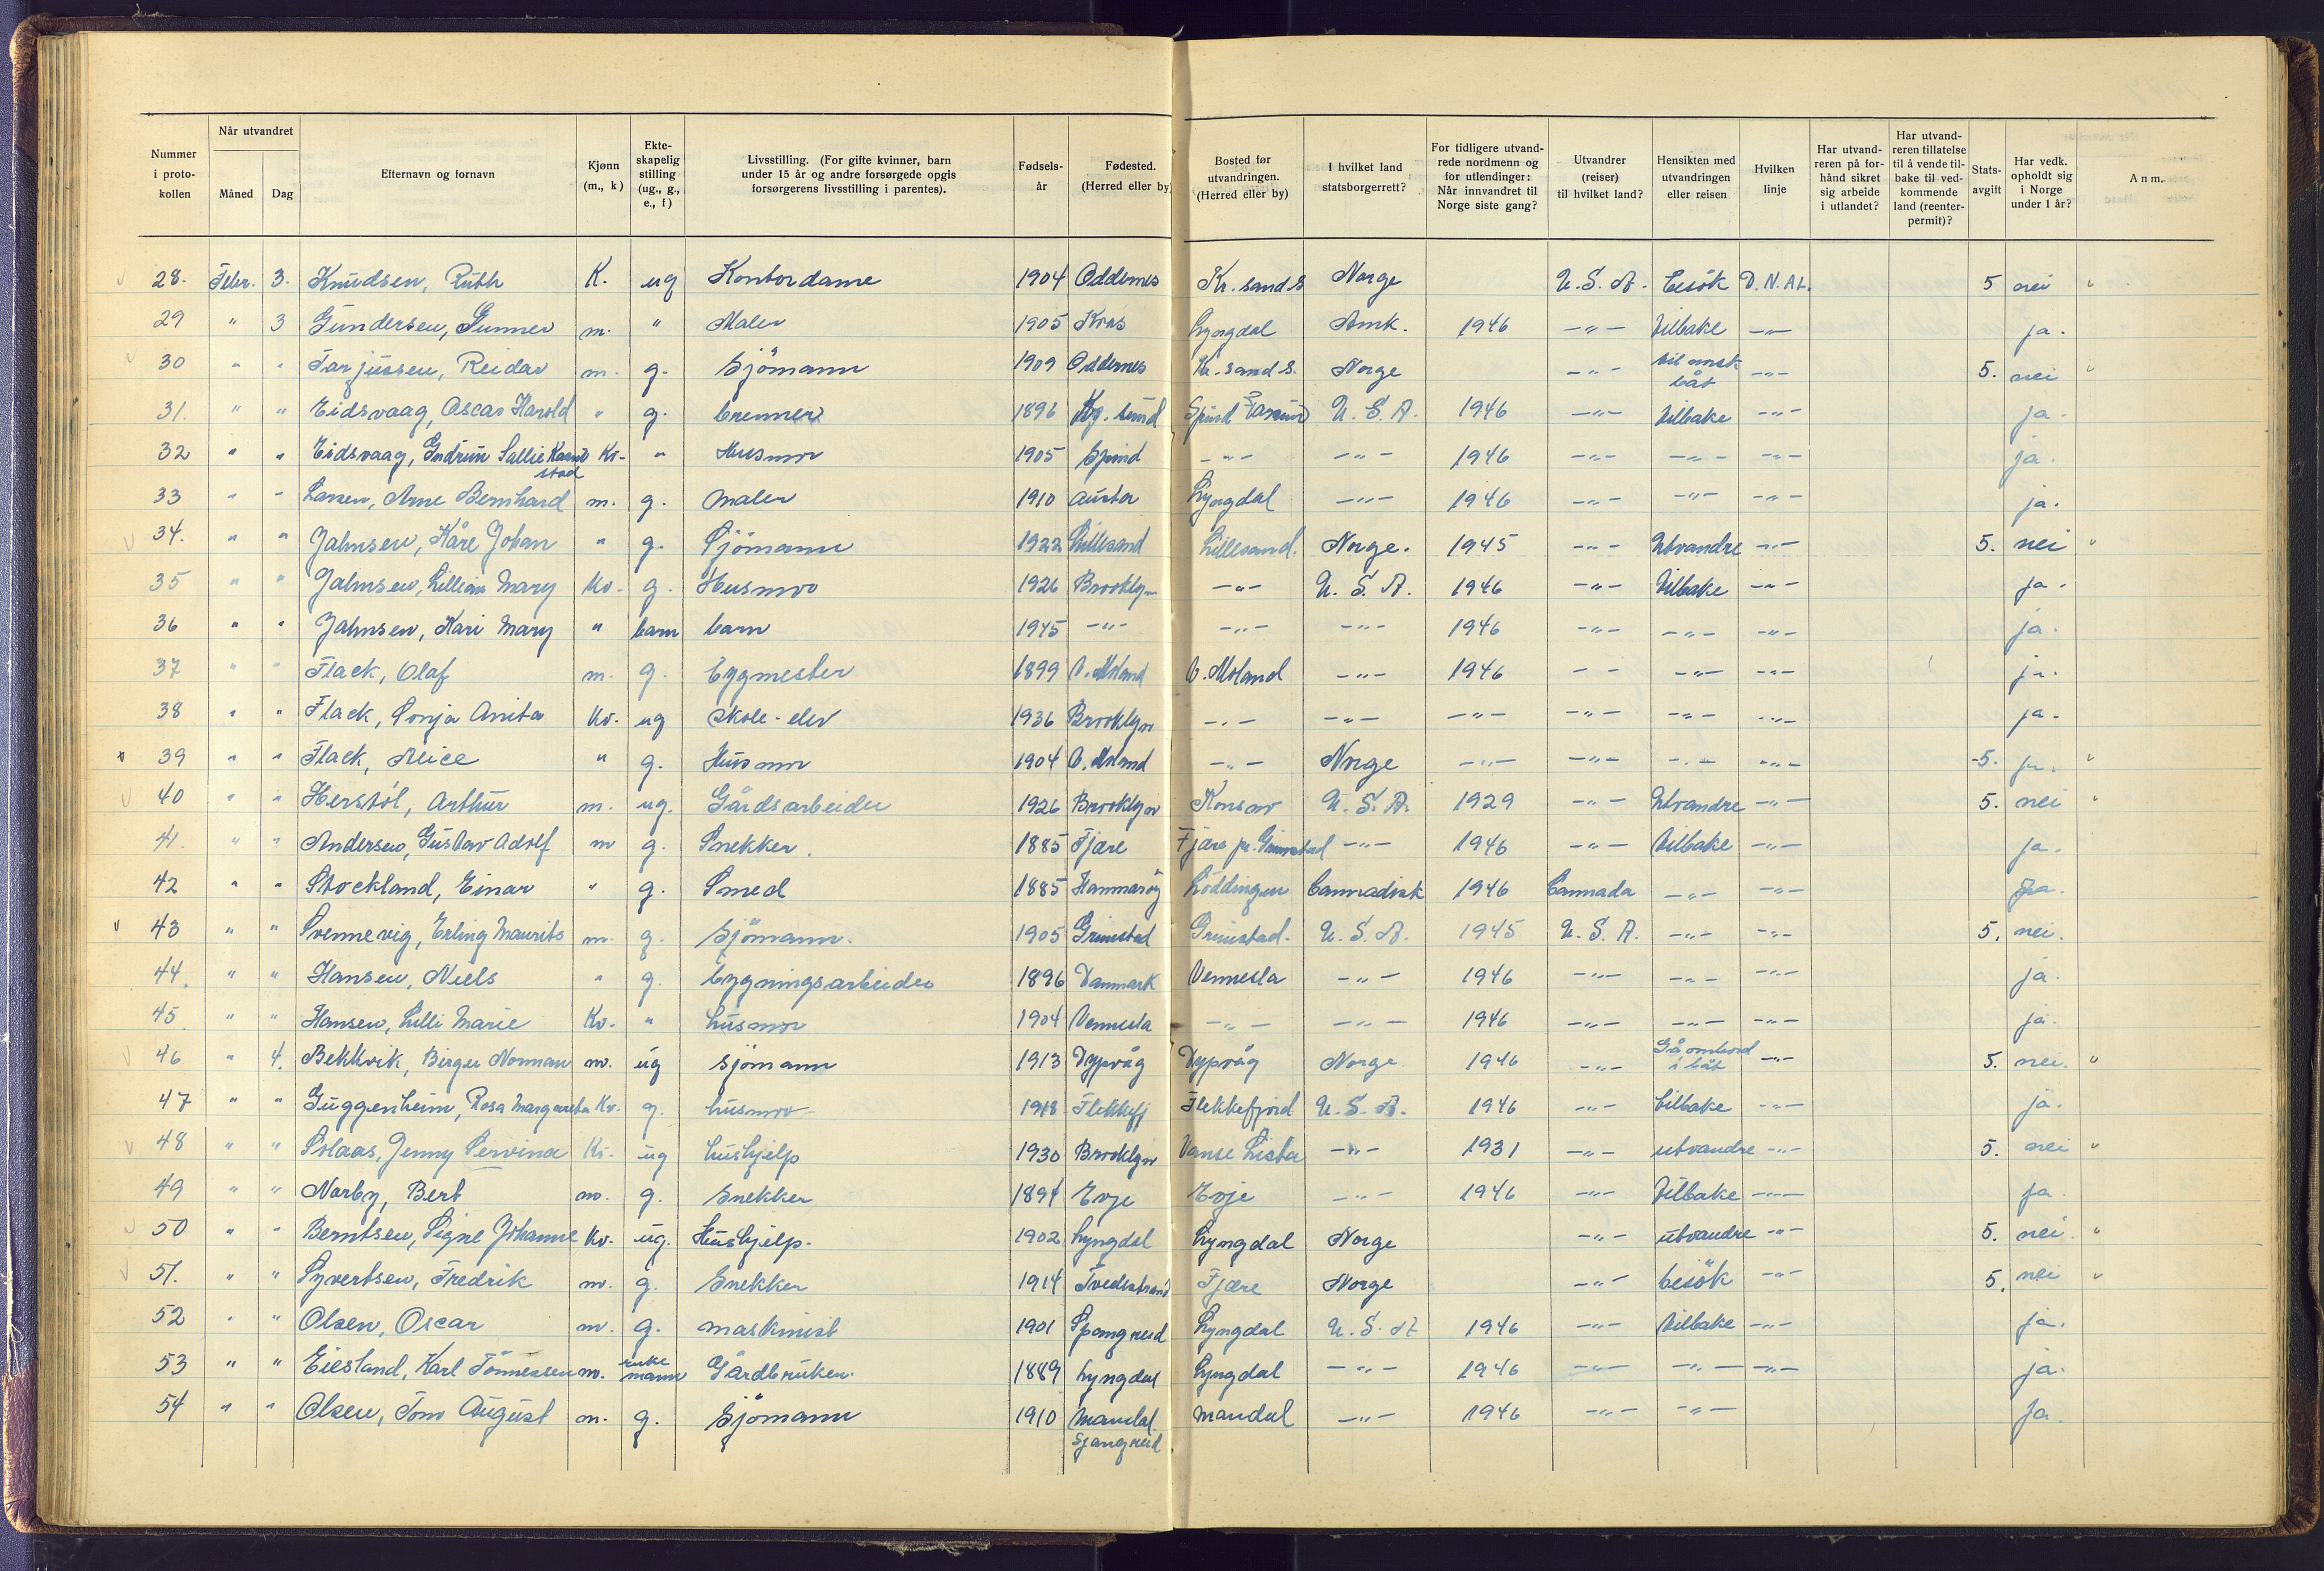 Nummer i proto-kollen | Når utvandret: Måned | Dag | Efternavn og fornavn | Kjønn (m., k) | Ekte-skapelig stilling (ug., g., e., f) | Livsstilling. (For gifte kvinner, barn under 15 år og andre forsørgede opgis forsørgerens livsstilling i parentes). | Fødsels-år | Fødested. (Herred eller by) | Bosted før utvandringen. (Herred eller by) | I hvilket land statsborgerrett? | For tidligere utvand-rede nordmenn og for utlendinger: Når innvandret til Norge siste gang? | Utvandrer (reiser) til hvilket land? | Hensikten med utvandringen eller reisen | Hvilken linje | Har utvand-reren på for-hånd sikret sig arbeide i utlandet? | Har utvand-reren tillatelse til å vende til-bake til ved-kommende land (reenter-permit)? | Stats-avgift | Har vedk. opholdt sig i Norge under 1 år? | Anm.
28. Febr. 3. Knudsen, Ruth K. ug Kontordame 1904 Oddernes Kr.sand S Norge U.S.A. besök D.N.A.L. 5 nei "
29 " 3 Gundersen, Gunner m. " Maler 1905 Kvås Lyngdal Amk. 1946 -"- tilbake -"- ja.
30 " " Tarjussen, Reidar m. g. Sjömann 1909 Oddernes Kr.sand S. Norge -"- til norsk båt -"- 5. nei "
31. " " Eidsvaag, Oscar Harold " g. brenner 1896 Spind Farsund U.S.A. 1946 -"- tilbake -"- ja.
32 " " Eidsvaag, Gudrun Sallie Kv. " Husmor 1905 Spind -"- -"- 1946 -"- -"- -"- ja.
33 " " Larsen, Arne Bernhard m. g. maler 1910 Lyngdal -"- 1946 -"- -"- -"- ja.
34. " " Jahnsen, Kåre Johan " g. Sjömann 1922 Lillesand Lillesand. Norge. 1945 -"- Utvandre -"- 5. nei "
35 " " Jahnsen, Lillian Mary Kv. g. Husmor 1926 Brooklyn -"- U.S.A. 1946 -"- tilbake -"- ja.
36 " " Jahnsen, Kari Mary " barn barn 1945 -"- -"- -"- 1946 -"- -"- -"- ja.
37 " " Flack, Olaf m. g. byggmester 1899 V. Moland V. Moland -"- 1946 - - -"- -"- ja.
38 " " Flack, Sonja Anita Kv. ug skole-elev 1936 Brooklyn -"- -"- -"- -"- -"- -"- ja.
39 " " Flack, Alice " g. Husmor 1904 V. Moland -"- Norge -"- -"- -"- -"- 5. ja. "
40 " " Herstöl, Arthur m. ug. Gårdsarbeider 1926 Brooklyn Konsmo U.S.A. 1929 -"- Utvandre -"- 5. nei "
41. " " Andersen, Gustav Adolf m g. Snekker. 1885 Fjære Fjære pr. Grimstad -"- 1946 -"- tilbake -"- ja.
42 " " Stockland, Einar " g. Smed 1885 Hammaröy Löddingen Cannadisk 1946 Cannada -"- -"- ja.
43 " " Svennevig, Erling Maurits m. g. Sjömann. 1905 Grimstad Grimstad. U.S.A. 1945 U.S.A. -"- -"- 5. nei.
44. " " Hansen, Niels " g. bygningsarbeider 1896 Danmark Vennesla -"- 1946 -"- -"- -"- ja.
45 " " Hansen, Lilli Marie Kv. " husmor 1904 Vennesla -"- -"- 1946 -"- -"- -"- ja.
46 " 4. Bekkvik, Birger Norman m. ug sjömann 1913 Dypvåg Dypvåg Norge 1946 -"- Gå ombord i båt -"- 5. nei. "
47 " " Guggenheim, Rosa Margaretha Kv. g. husmor 1918 Flekkefj Flekkefjord U.S.A. 1946 -"- tilbake -"- ja.
48 " " Solaas, Jenny Servina Kv. ug hushjelp 1930 Brooklyn Vanse Lista -"- 1931 -"- utvandre -"- 5. nei "
49 " " Norby, Bert m. g. Snekker 1894 Evje Evje -"- 1946 -"- tilbake -"- ja
50 " " Berntsen, Signe Johanne Kv. ug. Hushjelp. 1902 Lyngdal Lyngdal Norge -"- utvandre -"- 5. nei. "
51. " " Syvertsen, Fredrik m. g. Snekker 1914 Tvedestrand Fjære Norge -"- besök -"- 5. nei "
52 " " Olsen, Oscar m. g. maskinist 1901 Spangreid Lyngdal U.S.A 1946 -"- tilbake -"- ja.
53 " " Eiesland, Karl Tönnessen m. enke mann Gårdbruker. 1889 Lyngdal Lyngdal -"- 1946 -"- -"- -"- ja.
54 " " Olsen, Tom August m. g. Sjömann 1910 Mandal Spangreid Mandal -"- 1946 -"- -"- ja.